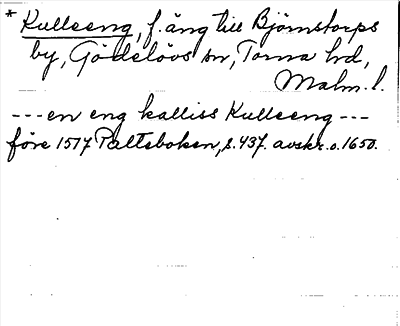 * Kulleeng, f. äng till Björnstorps
by, Gödelövs sn, Torna hd,
Malm. l.
--- en eng kalliss Kulleeng ---
före 1517 Palteboken, s. 437. avskr. o. 1650.